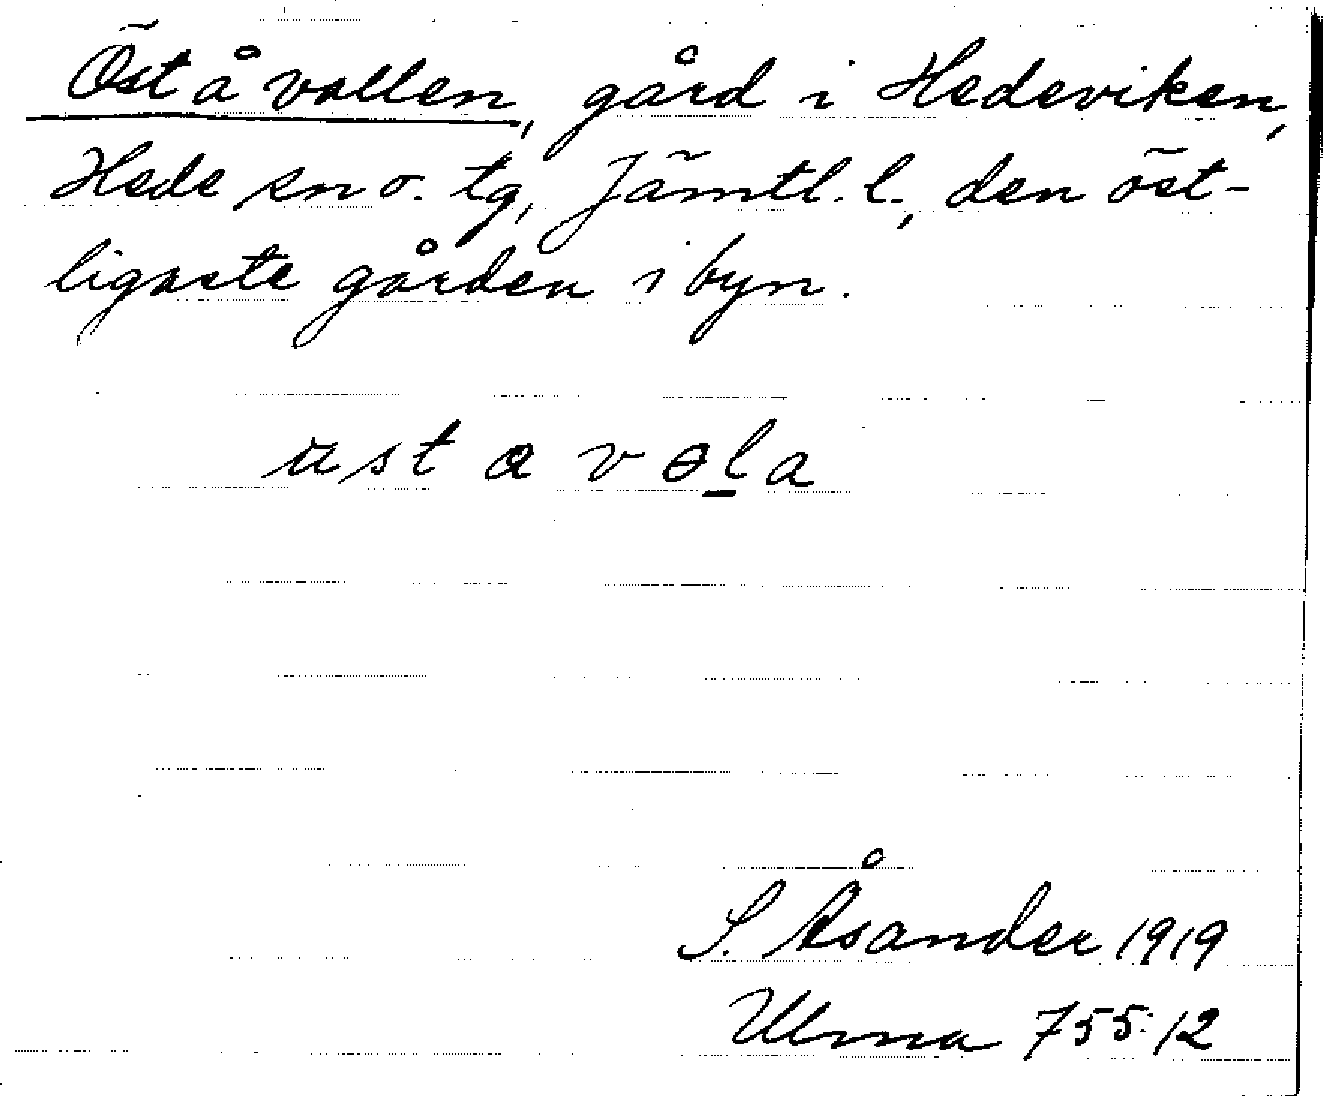 Öståvallen, gård i Hedeviken,
Hede sn o. tg, Jämtl. l., den öst-
ligaste gården i byn.
S. Åsander 1919
Ulma 755:12